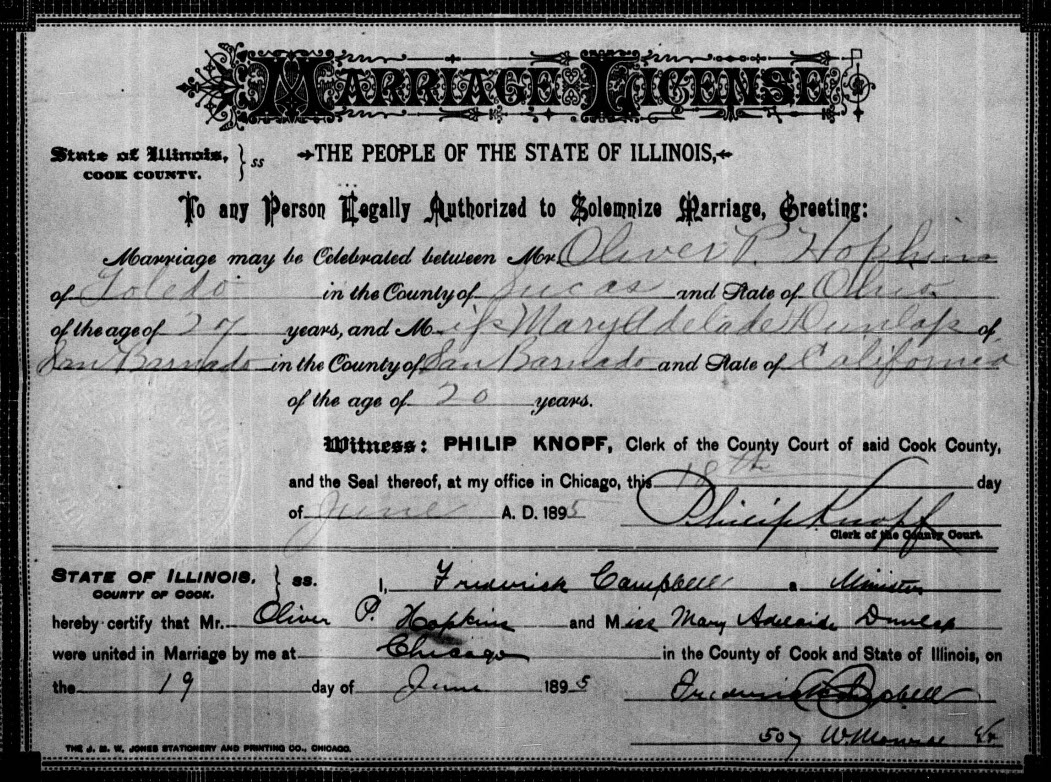 MARRIAGE LICENSE
State of Illinois, } ss
COOK COUNTY.
THE PEOPLE OF THE STATE OF ILLINOIS,
To any Person Legally Authorized to Solemnize Marriage, Greeting:
Marriage may be Celebrated between Mr. Oliver P. Hopkins
of Toledo in the County of Lucas and State of Ohio
of the age of years, and Miss Mary Adelade Dunlap of
San Barnado in the County of San Barnado and State of California
of the age of 20 years.
Witness: PHILIP KNOPF, Clerk of the County Court of said Cook County,
and the Seal thereof, at my office in Chicago, this 18th day
of June A. D. 1895 Philip Knopf
Clerk of the County Court.
STATE OF ILLINOIS, } ss. I, Frederick Campbell a Minister
COUNTY OF COOK.
hereby certify that Mr. Oliver P. Hopkins and Miss Mary Adelaide Dunlap
were united in Marriage by me at Chicago in the County of Cook and State of Illinois, on
the 19 day of June 1895 Frederick Campbell
507 W Monroe St
THE J. M. W. JONES STATIONERY AND PRINTING CO., CHICAGO.